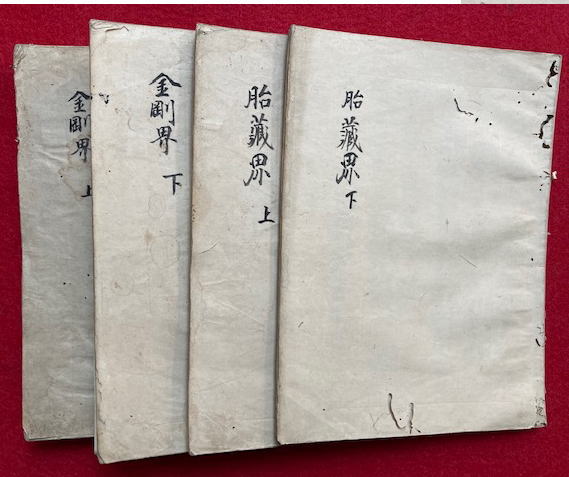 金剛界
上
金剛界
下
胎藏界
上
胎藏界
下